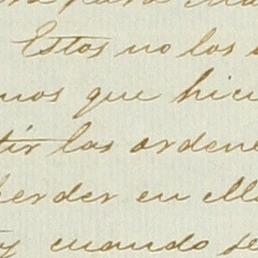 Estos no los
mos que hici
tir las ordene
perder en ell
y cuando se